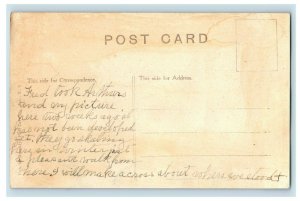 POST CARD
This side for Correspondence.
This side for Address.
Fred took Arthurs
and my picture
here two weeks ago &
has not been developed
yet. they go skating
here in winter just
a pleasant walk from
there. I will make a cross about where we stood +